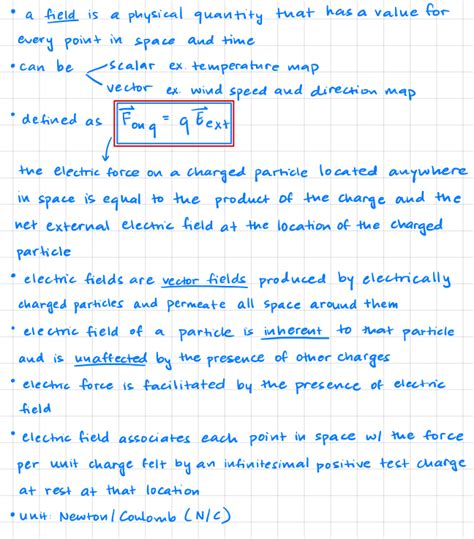 • a field is a physical quantity that has a value for
every point in space and time
• can be scalar ex. temperature map
vector ex. wind speed and direction map
• defined as F⃗ on q = q E⃗ ext
the electric force on a charged particle located anywhere
in space is equal to the product of the charge and the
net external electric field at the location of the charged
particle
• electric fields are vector fields produced by electrically
charged particles and permeate all space around them
• electric field of a particle is inherent to that particle
and is unaffected by the presence of other charges
• electric force is facilitated by the presence of electric
field
• electric field associates each point in space w/ the force
per unit charge felt by an infinitesimal positive test charge
at rest at that location
• unit: Newton/Coulomb (N/C)